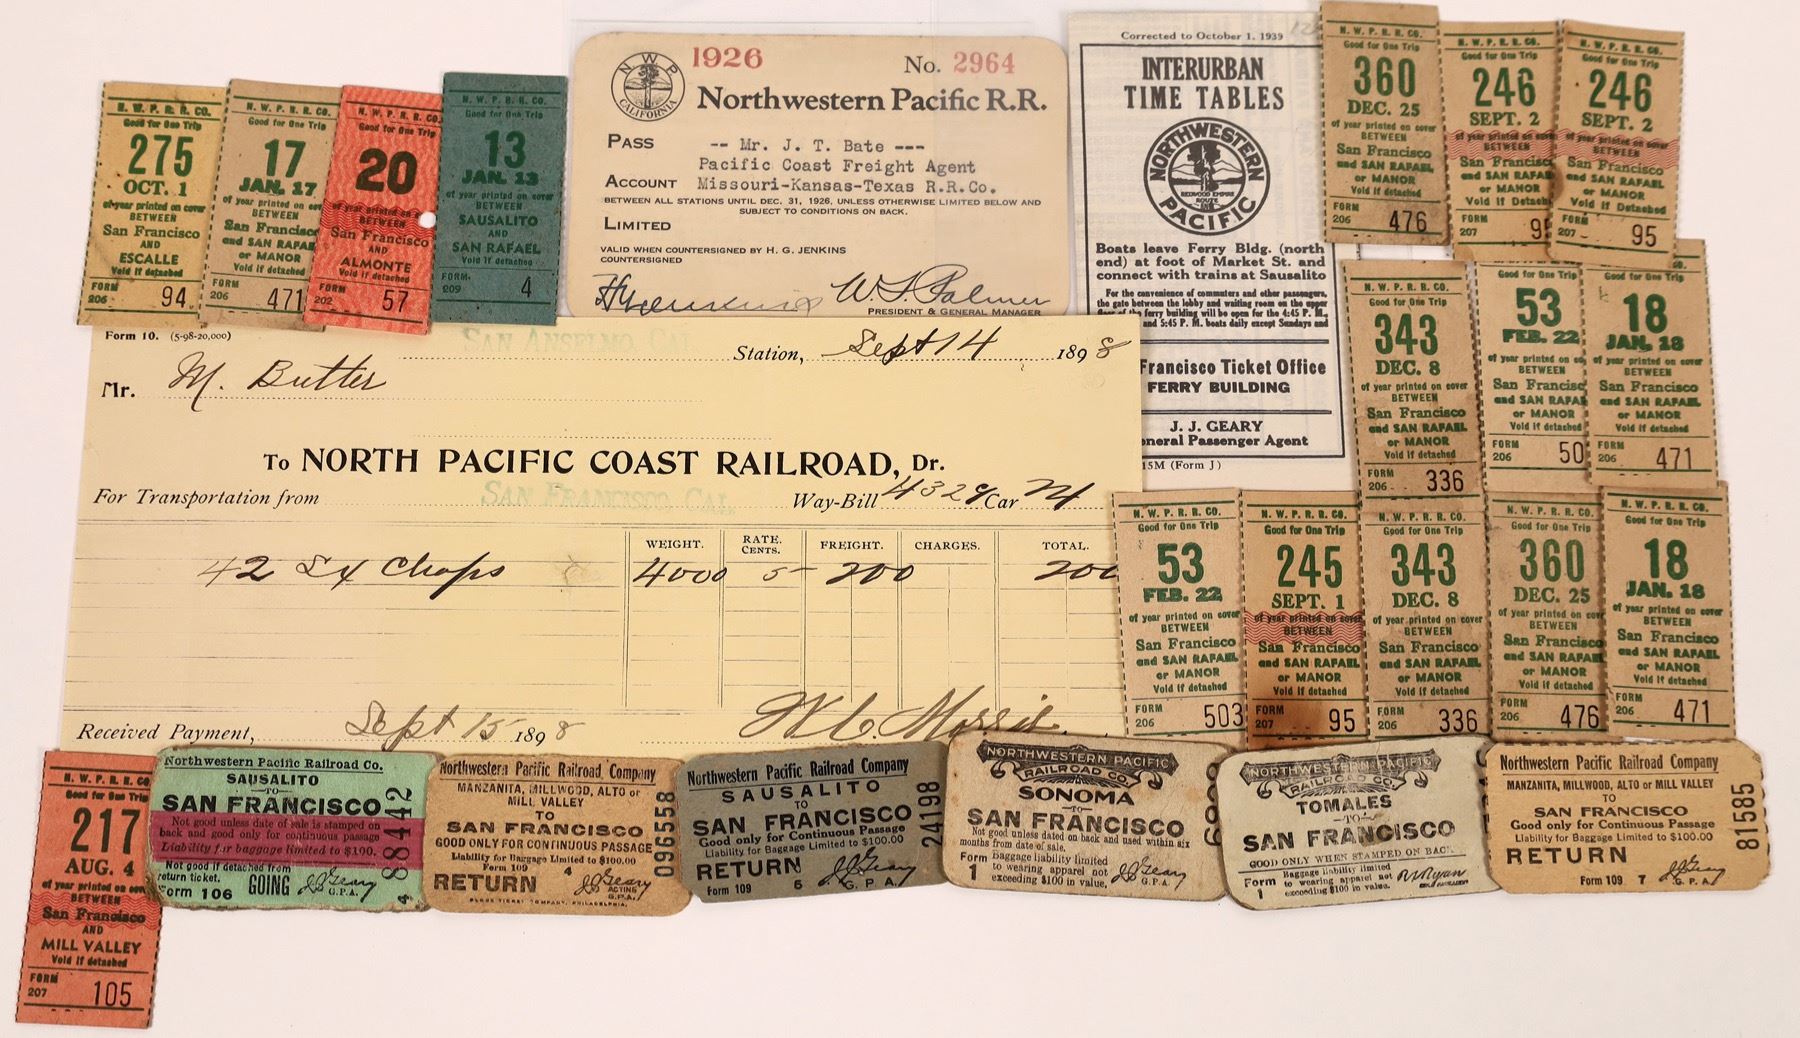 N. W. P. R. R. CO.
Good for One Trip
275
OCT. 1
of year printed on cover
BETWEEN
San Francisco
AND
ESCALLE
Void if detached
FORM
206
94
N. W. P. R. R. CO.
Good for One Trip
17
JAN. 17
of year printed on
BETWEEN
San Francisco
and SAN RAFAEL
or MANOR
Void if detached
FORM
206
471
N. W. P. R. R. CO.
Good for One Trip
20
of year printed on
BETWEEN
San Francisco
AND
ALMONTE
Void if detached
FORM
202
57
N. W. P. R. R. CO.
Good for One Trip
13
JAN. 13
of year printed on cover
BETWEEN
SAUSALITO
AND
SAN RAFAEL
Void if detached
FORM
209
4
NWP
CALIFORNIA
1926
No. 2964
Northwestern Pacific R.R.
PASS -- Mr. J. T. Bate ---
Pacific Coast Freight Agent
ACCOUNT Missouri-Kansas-Texas R.R.Co.
BETWEEN ALL STATIONS UNTIL DEC. 31, 1926, UNLESS OTHERWISE LIMITED BELOW AND
SUBJECT TO CONDITIONS ON BACK.
LIMITED
VALID WHEN COUNTERSIGNED BY H. G. JENKINS
COUNTERSIGNED
W. S. Palmer
PRESIDENT & GENERAL MANAGER
Corrected to October 1, 1939
INTERURBAN
TIME TABLES
NORTHWESTERN
REDWOOD EMPIRE
ROUTE
PACIFIC
Boats leave Ferry Bldg. (north
end) at foot of Market St. and
connect with trains at Sausalito
For the convenience of commuters and other passengers,
the gate between the lobby and waiting room on the upper
floor of the ferry building will be open for the 4:45 P. M.,
and 5:45 P. M. boats daily except Sundays and
Francisco Ticket Office
FERRY BUILDING
J. J. GEARY
General Passenger Agent
15M (Form J)
N. W. P. R. R. CO.
Good for One Trip
360
DEC. 25
of year printed on cover
BETWEEN
San Francisco
and SAN RAFAEL
or MANOR
Void if detached
FORM
206
476
N. W. P. R. R. CO.
Good for One Trip
246
SEPT. 2
of year printed on cover
BETWEEN
San Francisco
and SAN RAFAEL
or MANOR
Void if Detached
FORM
207
95
N. W. P. R. R. CO.
Good for One Trip
246
SEPT. 2
of year printed on cover
BETWEEN
San Francisco
and SAN RAFAEL
or MANOR
Void if Detached
FORM
207
95
Good for One Trip
343
DEC. 8
of year printed on cover
BETWEEN
San Francisco
and SAN RAFAEL
or MANOR
Void if detached
FORM
206
336
Good for One Trip
53
FEB. 22
of year printed on
BETWEEN
San Francisco
and SAN RAFAEL
or MANOR
Void if detached
FORM
206
50
Good for One Trip
18
JAN. 18
of year printed on cover
BETWEEN
San Francisco
and SAN RAFAEL
or MANOR
Void if detached
FORM
206
471
Form 10. (5-98-20,000)
SAN ANSELMO, CAL.
Station, Sept 14 1898
Mr. M. Butter
To NORTH PACIFIC COAST RAILROAD, Dr.
For Transportation from SAN FRANCISCO, CAL. Way-Bill 4329 Car
WEIGHT. RATE. CENTS. FREIGHT. CHARGES. TOTAL.
42 Sx Chops 4000 5 200 200
Received Payment, Sept 15 1898
N. W. P. R. R. CO.
Good for One Trip
53
FEB. 22
of year printed on cover
BETWEEN
San Francisco
and SAN RAFAEL
or MANOR
Void if detached
FORM
206
503
N. W. P. R. R. CO.
Good for One Trip
245
SEPT. 1
of year printed on cover
BETWEEN
San Francisco
and SAN RAFAEL
or MANOR
Void if detached
FORM
207
95
N. W. P. R. R. CO.
Good for One Trip
343
DEC. 8
of year printed on cover
BETWEEN
San Francisco
and SAN RAFAEL
or MANOR
Void if detached
FORM
206
336
N. W. P. R. R. CO.
Good for One Trip
360
DEC. 25
of year printed on cover
BETWEEN
San Francisco
and SAN RAFAEL
or MANOR
Void if detached
FORM
206
476
N. W. P. R. R. CO.
Good for One Trip
18
JAN. 18
of year printed on cover
BETWEEN
San Francisco
and SAN RAFAEL
or MANOR
Void if detached
FORM
206
471
N. W. P. R. R. CO.
Good for One Trip
217
AUG. 4
of year printed on cover
BETWEEN
San Francisco
AND
MILL VALLEY
Void if detached
FORM
207
105
Northwestern Pacific Railroad Co.
SAUSALITO
TO
SAN FRANCISCO
Not good unless date of sale is stamped on
back and good only for continuous passage
Liability for baggage limited to $100.
Not good if detached from
return ticket. GOING
Form 106
J. J. Geary
G.P.A.
88442
4
Northwestern Pacific Railroad Company
MANZANITA, MILLWOOD, ALTO or
MILL VALLEY
TO
SAN FRANCISCO
GOOD ONLY FOR CONTINUOUS PASSAGE
Liability for Baggage Limited to $100.00
Form 109 4
RETURN
J. J. Geary
ACTING
G.P.A.
GLOBE TICKET COMPANY, PHILADELPHIA.
096558
Northwestern Pacific Railroad Company
SAUSALITO
TO
SAN FRANCISCO
Good only for Continuous Passage
Liability for Baggage Limited to $100.00
RETURN
Form 109 5
J. J. Geary
G. P. A.
24198
NORTHWESTERN PACIFIC
RAILROAD CO.
SONOMA
TO
SAN FRANCISCO
Not good unless dated on back and used within six
months from date of sale.
Form 1
Baggage liability limited
to wearing apparel not
exceeding $100 in value.
J. J. Geary
G.P.A.
NORTHWESTERN PACIFIC
RAILROAD CO.
TOMALES
TO
SAN FRANCISCO
GOOD ONLY WHEN STAMPED ON BACK
Form 1
Baggage liability limited
to wearing apparel not
exceeding $100 in value.
Northwestern Pacific Railroad Company
MANZANITA, MILLWOOD, ALTO or MILL VALLEY
TO
SAN FRANCISCO
Good only for Continuous Passage
Liability for Baggage Limited to $100.00
RETURN
Form 109 7
J. J. Geary
G. P. A.
81585